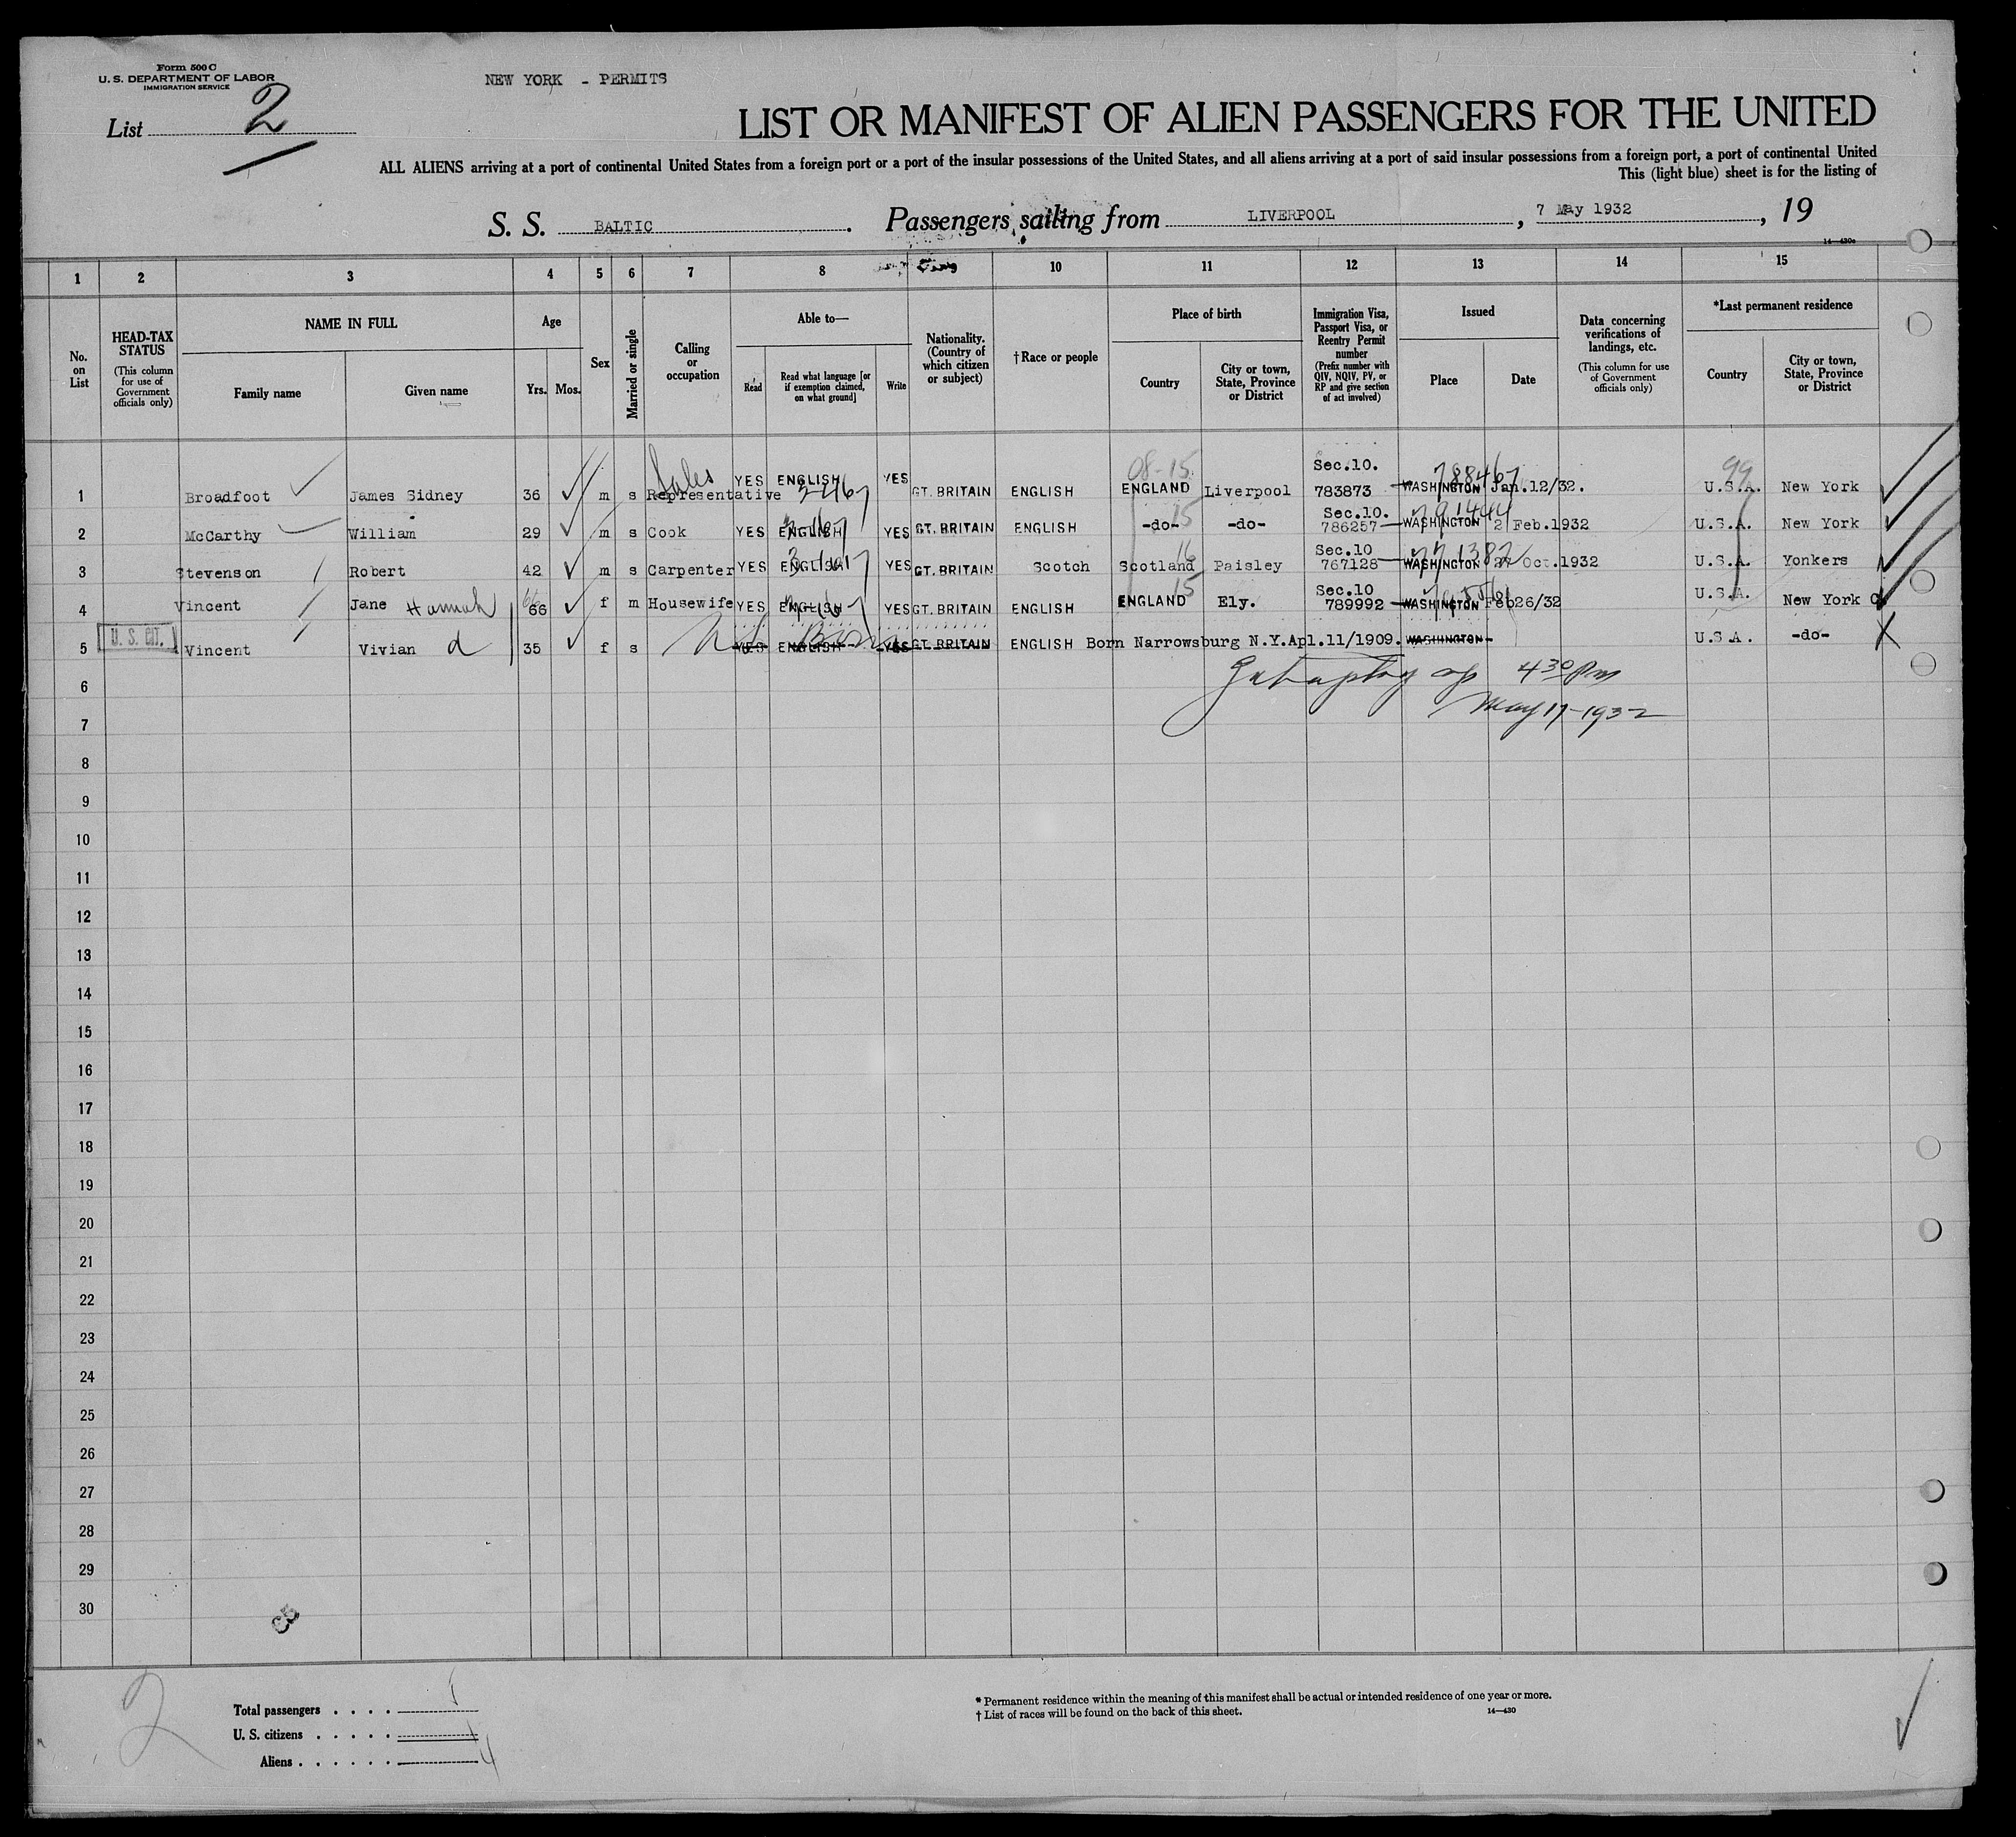 Form 500 C
U. S. DEPARTMENT OF LABOR
IMMIGRATION SERVICE
NEW YORK - PERMITS
List 2
LIST OR MANIFEST OF ALIEN PASSENGERS FOR THE UNITED
ALL ALIENS arriving at a port of continental United States from a foreign port or a port of the insular possessions of the United States, and all aliens arriving at a port of said insular possessions from a foreign port, a port of continental United
This (light blue) sheet is for the listing of
S. S. BALTIC. Passengers sailing from LIVERPOOL, 7 May 1932, 19
14—430a
1 2 3 4 5 6 7 8 10 11 12 13 14 15
No. on List
HEAD-TAX STATUS (This column for use of Government officials only)
NAME IN FULL
Family name
Given name
Age
Yrs. Mos.
Sex
Married or single
Calling or occupation
Able to—
Read
Read what language [or if exemption claimed, on what ground]
Write
Nationality. (Country of which citizen or subject)
† Race or people
Place of birth
Country
City or town, State, Province or District
Immigration Visa, Passport Visa, or Reentry Permit number (Prefix number with QIV, NQIV, PV, or RP and give section of act involved)
Issued
Place
Date
Data concerning verifications of landings, etc. (This column for use of Government officials only)
*Last permanent residence
Country
City or town, State, Province or District
Sales 08-15 Sec.10. 788467 99
1 Broadfoot James Sidney 36 m s Representative YES ENGLISH YES GT. BRITAIN ENGLISH ENGLAND Liverpool 783873 WASHINGTON Jan.12/32. U.S.A. New York
15 Sec.10. 791444
2 McCarthy William 29 m s Cook YES ENGLISH YES GT. BRITAIN ENGLISH -do- -do- 786257 WASHINGTON 2 Feb.1932 U.S.A. New York
16 Sec.10 771382
3 Stevenson Robert 42 m s Carpenter YES ENGLISH YES GT. BRITAIN Scotch Scotland Paisley 767128 WASHINGTON 27 Oct.1932 U.S.A. Yonkers
15 Sec.10
4 Vincent Jane Hannah 66 f m Housewife YES ENGLISH YES GT. BRITAIN ENGLISH ENGLAND Ely. 789992 WASHINGTON Feb26/32 U.S.A. New York C
U. S. CIT.
5 Vincent Vivian d 35 f s YES ENGLISH YES GT. BRITAIN ENGLISH Born Narrowsburg N.Y.Apl.11/1909. WASHINGTON U.S.A. -do-
6 4 30 Pm
7 May 17-1932
8
9
10
11
12
13
14
15
16
17
18
19
20
21
22
23
24
25
26
27
28
29
30
2
Total passengers
U. S. citizens 1
Aliens 4
* Permanent residence within the meaning of this manifest shall be actual or intended residence of one year or more.
† List of races will be found on the back of this sheet. 14—430